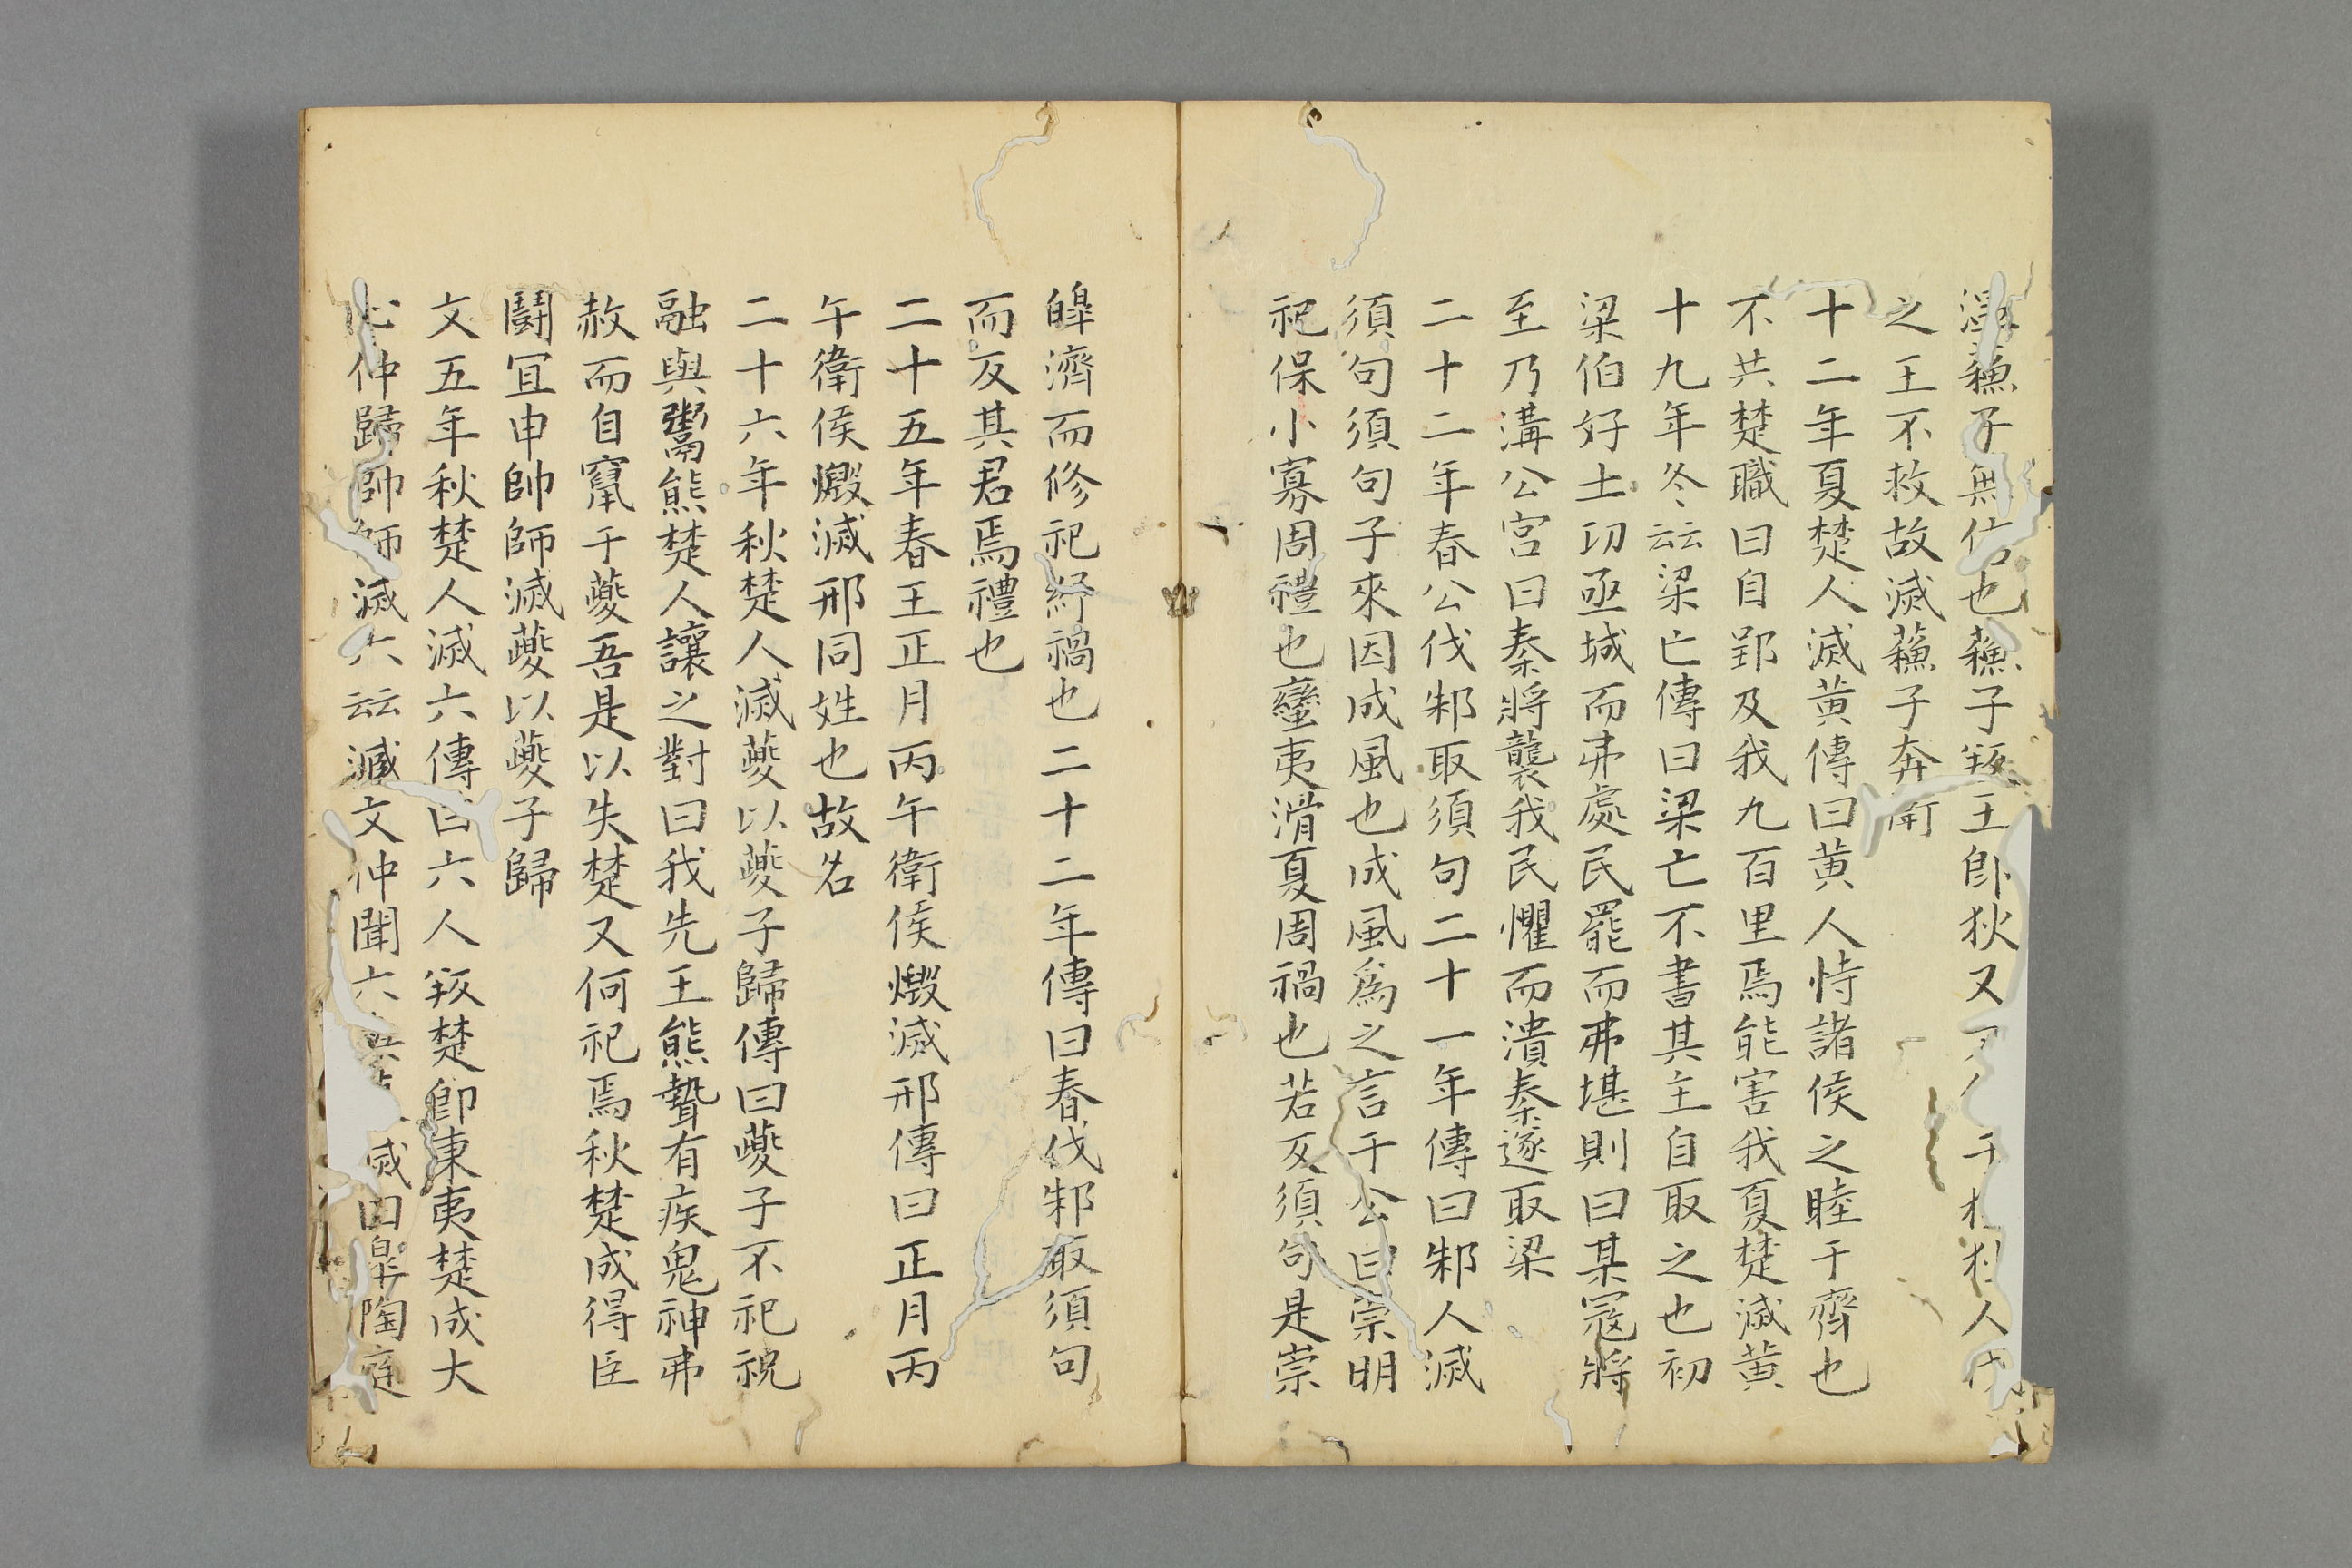 蘓子無信也蘓子叛王卽狄又人伐
之王不救故滅蘓子奔
十二年夏楚人滅黄傳曰黄人恃諸侯之睦于齊也
不共楚職曰自郢及我九百里焉能害我夏楚滅黄
十九年冬云云梁亡傳曰梁亡不書其主自取之也初
梁伯好土㓛亟城而弗處民罷而弗堪則曰某寇將
至乃溝公宮曰秦將襲我民懼而潰秦遂取梁
二十二年春公伐邾取須句二十一年傳曰邾人滅
須句須句子來因成風也成風爲之言于公曰崇明
祀保小寡周禮也蠻夷滑夏周禍也若反須句是崇
皥濟而修祀紓禍也二十二年傳曰春伐邾取須句
而反其君焉禮也
二十五年春王正月丙午衛侯燬滅邢傳曰正月丙
午衛侯燬滅邢同姓也故名
二十六年秋楚人滅夔以夔子歸傳曰夔子不祀祝
融與鬻熊楚人讓之對曰我先王熊摯有疾鬼神弗
赦而自竄于夔吾是以失楚又何祀焉秋楚成得臣
鬪宜申帥師滅夔以夔子歸
文五年秋楚人滅六傳曰六人叛楚卽東夷楚成大
心仲歸帥師滅六云云臧文仲聞六滅曰皐陶庭